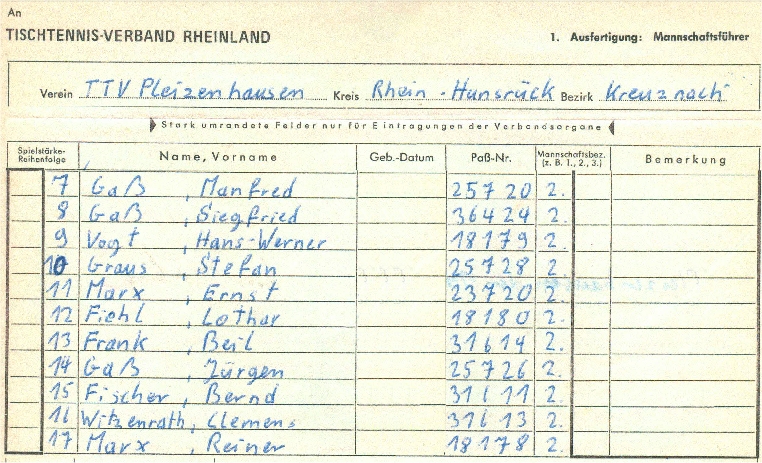 An
TISCHTENNIS-VERBAND RHEINLAND 1. Ausfertigung: Mannschaftsführer
Verein TTV Pleizenhausen Kreis Rhein-Hunsrück Bezirk Kreuznach
Stark umrandete Felder nur für Eintragungen der Verbandsorgane
Spielstärke-Reihenfolge Name, Vorname Geb.-Datum Paß-Nr. Mannschaftsbez. (z. B. 1., 2., 3.) Bemerkung
7 Gaß, Manfred 25720 2.
8 Gaß, Siegfried 36424 2.
9 Vogt, Hans-Werner 18179 2.
10 Graus, Stefan 25728 2.
11 Marx, Ernst 23720 2.
12 Fiehl, Lothar 18180 2.
13 Frank, Beil 31614 2.
14 Gaß, Jürgen 25726 2.
15 Fischer, Bernd 31611 2.
16 Witzenrath, Clemens 31613 2.
17 Marx, Reiner 18178 2.